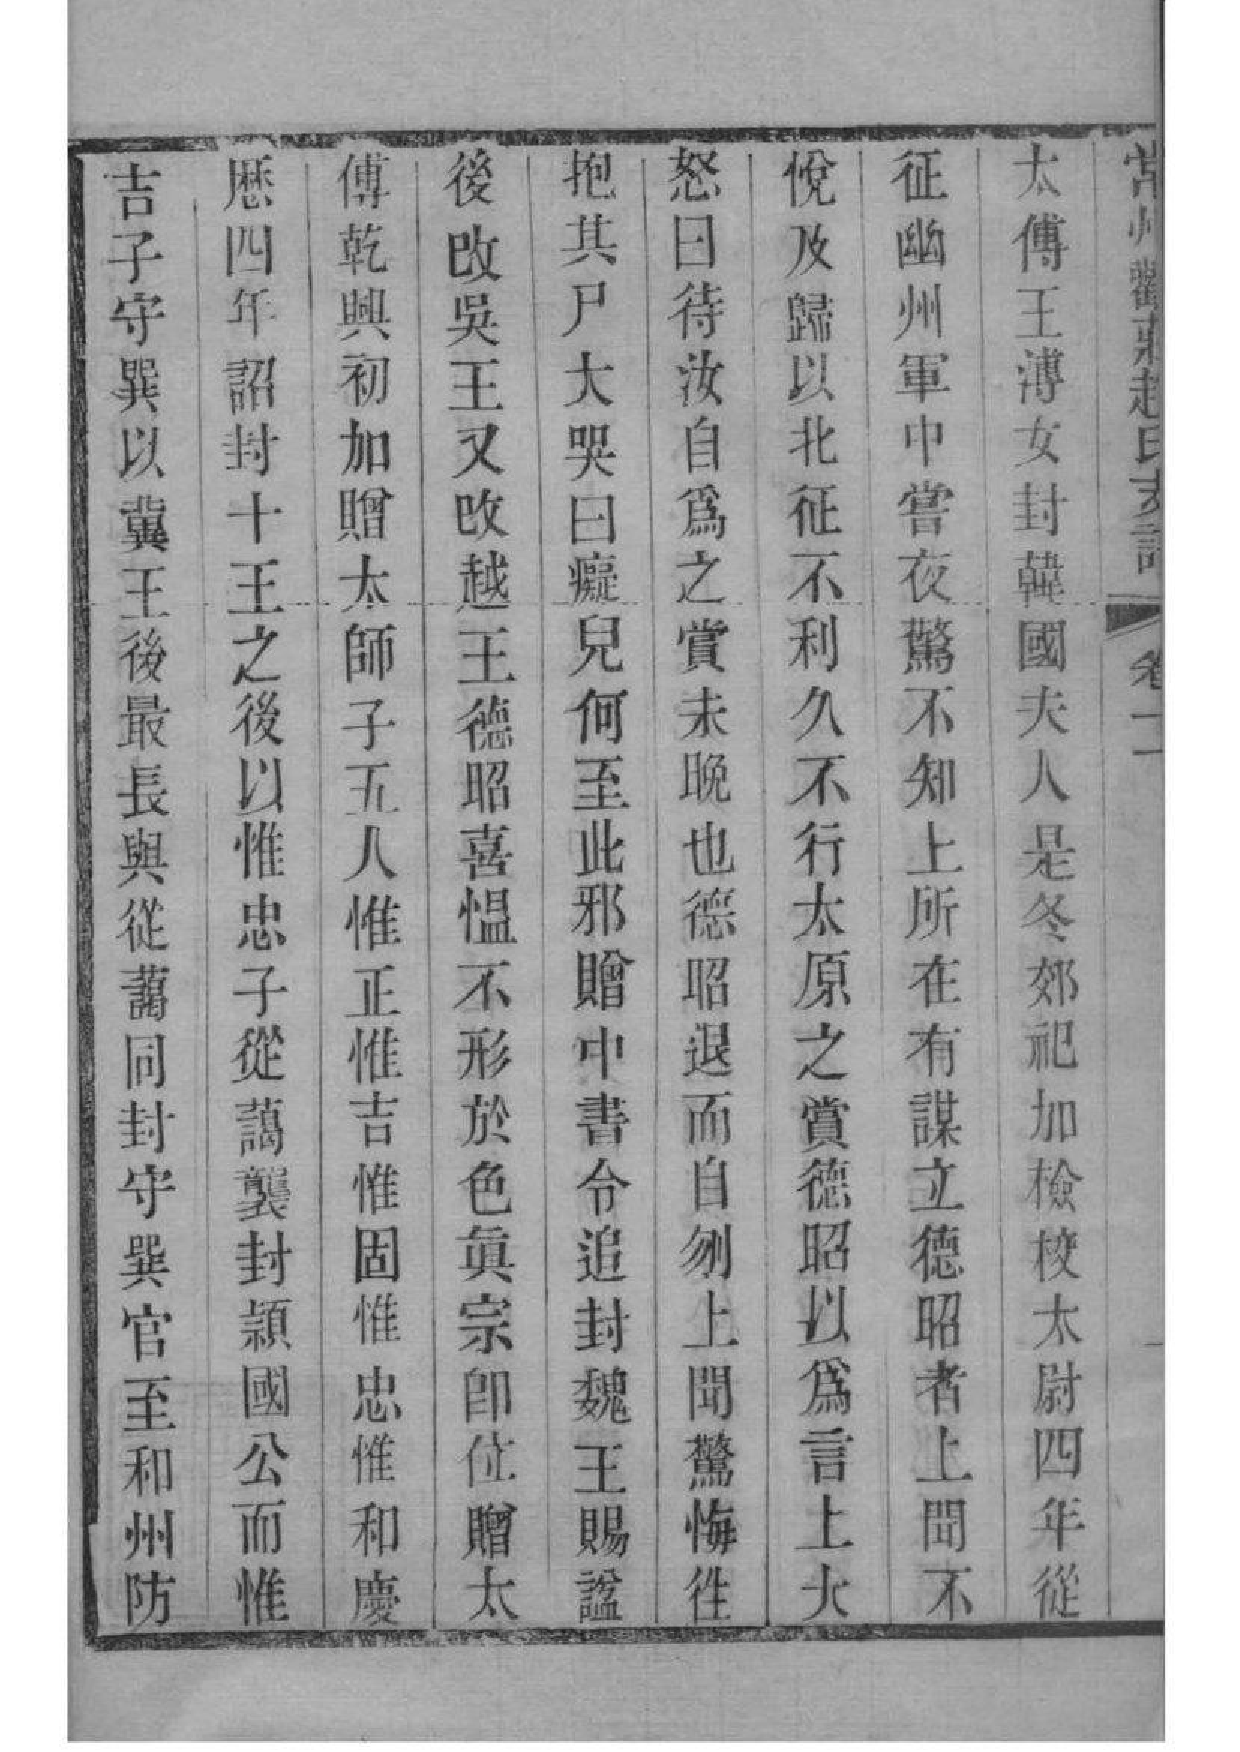 常州觀莊趙氏支譜 卷二
太傅王溥女封韓國夫人是冬郊祀加檢校太尉四年從
征幽州軍中嘗夜驚不知上所在有謀立德昭者上聞不
悅及歸以北征不利久不行太原之賞德昭以爲言上大
怒曰待汝自爲之賞未晚也德昭退而自刎上聞驚悔徃
抱其尸大哭曰癡兒何至此邪贈中書令追封魏王賜諡
後改吳王又改越王德昭喜慍不形於色眞宗卽位贈太
傅乾興初加贈太師子五人惟正惟吉惟固惟忠惟和慶
厯四年詔封十王之後以惟忠子從藹襲封潁國公而惟
吉子守巽以冀王後最長與從藹同封守巽官至和州防